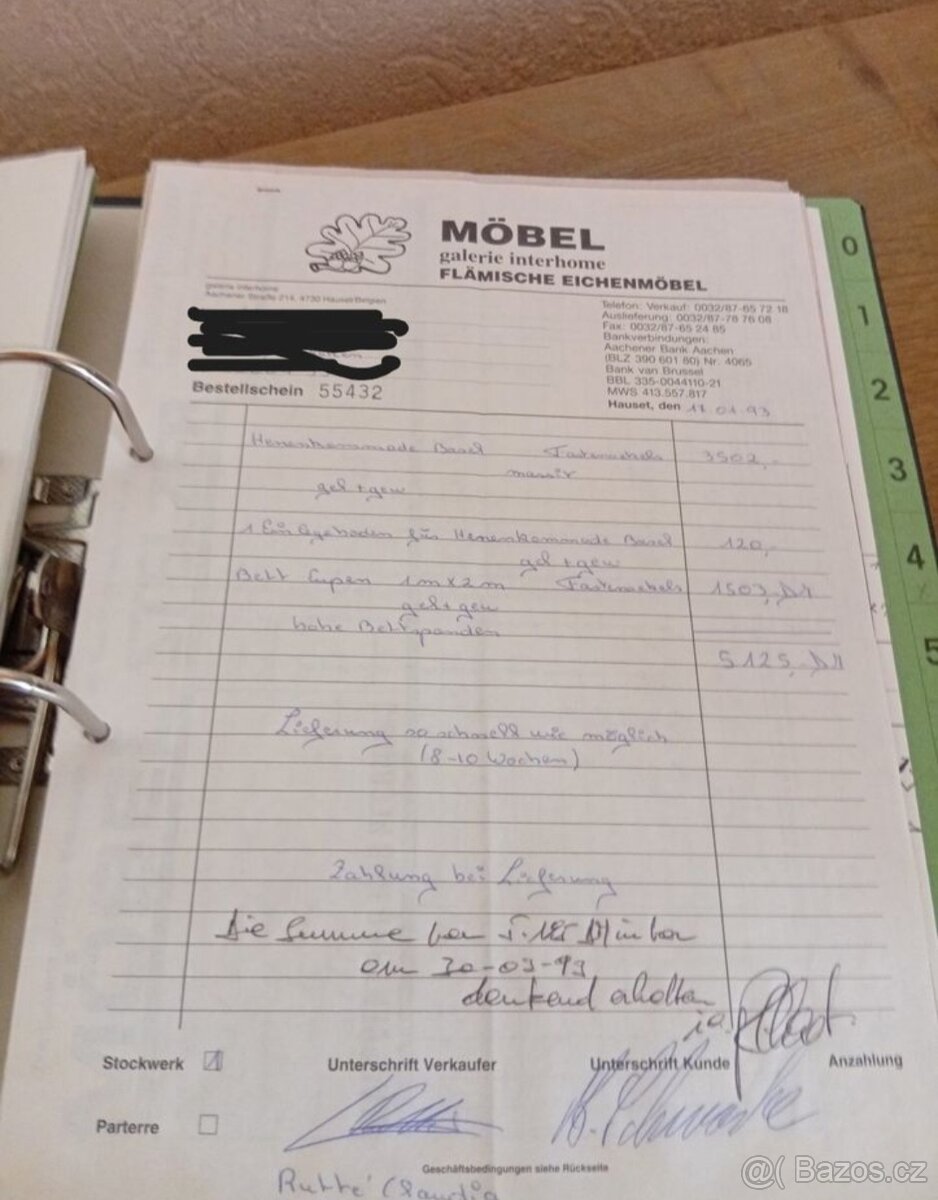 MÖBEL
galerie interhome
FLÄMISCHE EICHENMÖBEL
galerie interhome
Aachener Straße 214, 4730 Hauset/Belgien
Telefon: Verkauf: 0032/87-65 72 18
Auslieferung: 0032/87-76 76 08
Fax: 0032/87-65 24 85
Bankverbindungen:
Aachener Bank Aachen
(BLZ 390 601 80) Nr. 4065
Bank van Brussel
BBL 335-0044110-21
MWS 413.557.817
Bestellschein 55432
Hauset, den 17 01.93
Herrenkommode Basel 3502,-
massiv
gel + gew
1 Einlegeboden für Herrenkommode Basel 120,-
gel + gew
Bett Eupen 1m x 2m 1503,DM
gel + gew
hohe Bettpanden
5125,DM
Lieferung so schnell wie möglich
(8-10 Wochen)
Zahlung bei Lieferung
Die Summe von 5.125 DM in bar
am 30-03-93
dankend erhalten
i.a.
Stockwerk 1 Unterschrift Verkaufer Unterschrift Kunde Anzahlung
Parterre
B. Schwanke
Geschäftsbedingungen siehe Rückseite
Claudia
@( Bazos.cz